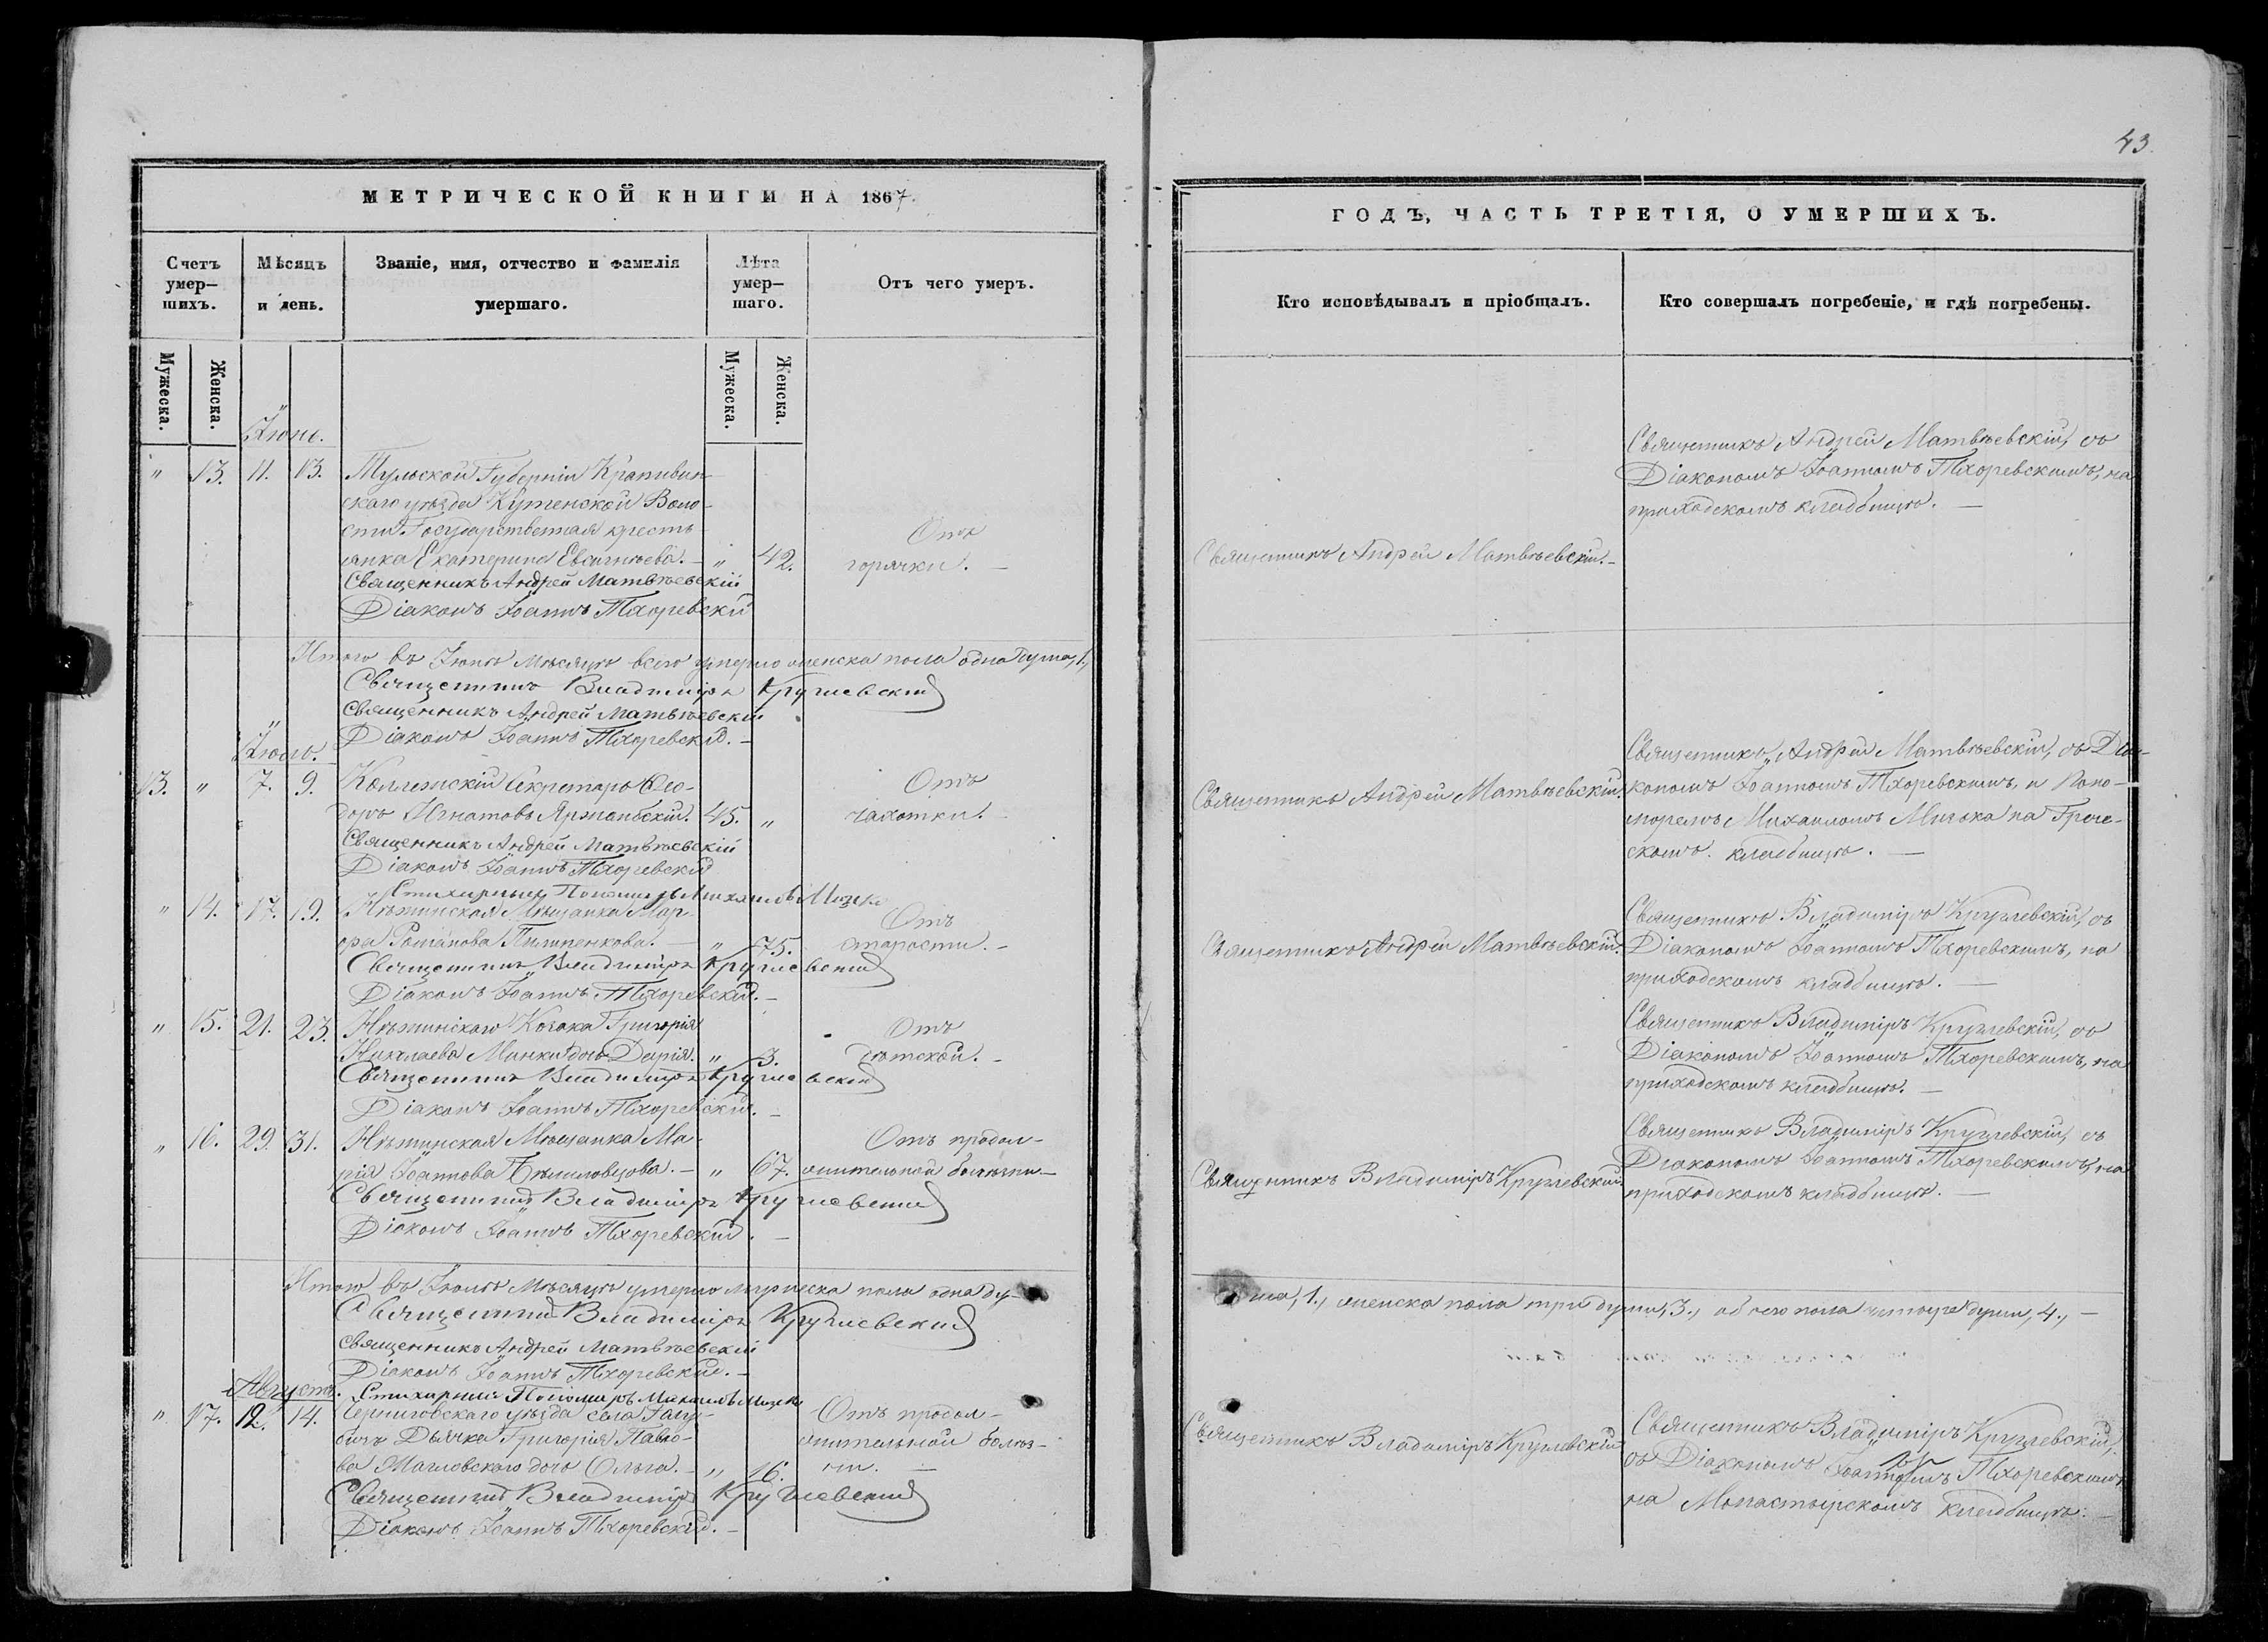 МЕТРИЧЕСКОЙ КНИГИ НА 1867.
Счетъ умер-шихъ.
Мѣсяцъ и день.
Званіе, имя, отчество и фамилія умершаго.
Лѣта умер-шаго.
Отъ чего умеръ.
Мужеска.
Женска.
Мужеска.
Женска.
Іюнь.
" 13. 11. 13. Тульской Губерніи Крапивин-
скаго уѣзда Воло-
сти Государственная кресть-
янка Екатерина " 42. Отъ горячки. —
Священникъ Андрей Матвѣевскій
Діаконъ Іоаннъ Тхоревскій
Итого въ Іюнѣ мѣсяцѣ всего умерло женска пола одна душа, 1.,
Священникъ Владиміръ Кружевскій
Священникъ Андрей Матвѣевскій
Діаконъ Іоаннъ Тхоревскій. —
Іюль.
13. " 7. 9. Коллежскій Секретарь Ѳео-
доръ Игнатовъ 45. " Отъ чахотки.
Священникъ Андрей Матвѣевскій
Діаконъ Іоаннъ Тхоревскій
Стихарный Пономарь Михаилъ
" 14. 17. 19. Нѣжинская Мѣщанка Мар-
Романова " 75. Отъ старости. —
Священникъ Владиміръ Кружевскій
Діаконъ Іоаннъ Тхоревскій. —
" 15. 21. 23. Нѣжинскаго Козака Григорія
Николаева дочь Дарія. " 3. Отъ дѣтской. —
Священникъ Владиміръ Кружевскій
Діаконъ Іоаннъ Тхоревскій. —
" 16. 29. 31. Нѣжинская Мѣщанка Ма-
рія Іоаннова — " 67. Отъ продол-
жительной болѣзни —
Священникъ Владиміръ Кружевскій
Діаконъ Іоаннъ Тхоревскій. —
Итого въ Іюлѣ мѣсяцѣ умерло мужеска пола одна ду-
Священникъ Владиміръ Кружевскій
Священникъ Андрей Матвѣевскій
Діаконъ Іоаннъ Тхоревскій. —
Августъ. Стихарный Пономарь Михаилъ
" 17. 12. 14. Черниговскаго уѣзда села
Дьячка Григорія Павло-
ва дочь Ольга. — " 16. Отъ продол-
жительной болѣз-
ни. —
Священникъ Владиміръ Кружевскій
Діаконъ Іоаннъ Тхоревскій. —
43.
ГОДЪ, ЧАСТЬ ТРЕТІЯ, О УМЕРШИХЪ.
Кто исповѣдывалъ и пріобщалъ.
Кто совершалъ погребеніе, и гдѣ погребены.
Священникъ Андрей Матвѣевскій. —
Священникъ Андрей Матвѣевскій, съ
Діакономъ Іоанномъ Тхоревскимъ, на
приходскомъ кладбищѣ. —
Священникъ Андрей Матвѣевскій.
Священникъ Андрей Матвѣевскій, съ Діа-
кономъ Іоанномъ Тхоревскимъ, и Поно-
маремъ Михаиломъ на Грече-
скомъ кладбищѣ. —
Священникъ Андрей Матвѣевскій.
Священникъ Владиміръ Кружевскій, съ
Діакономъ Іоанномъ Тхоревскимъ, на
приходскомъ кладбищѣ. —
Священникъ Владиміръ Кружевскій, съ
Діакономъ Іоанномъ Тхоревскимъ, на
приходскомъ кладбищѣ. —
Священникъ Владиміръ Кружевскій.
Священникъ Владиміръ Кружевскій, съ
Діакономъ Іоанномъ Тхоревскимъ, на
приходскомъ кладбищѣ. —
ша, 1., женска пола три души, 3., обоего пола четыре души, 4., —
Священникъ Владиміръ Кружевскій
Священникъ Владиміръ Кружевскій,
съ Діакономъ Іоанномъ Тхоревскимъ
на Монастырскомъ кладбищѣ. —